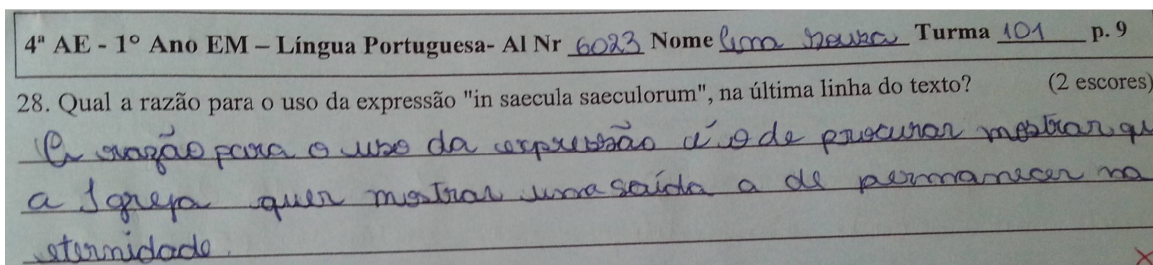 4ª AE - 1° Ano EM – Língua Portuguesa- Al Nr 6023 Nome Lima Souza Turma 101 p. 9
28. Qual a razão para o uso da expressão "in saecula saeculorum", na última linha do texto? (2 escores)
A razão para o uso da expressão é o de procurar mostrar qu
a Igreja quer mostrar uma saída a de permanecer na
eternidade.